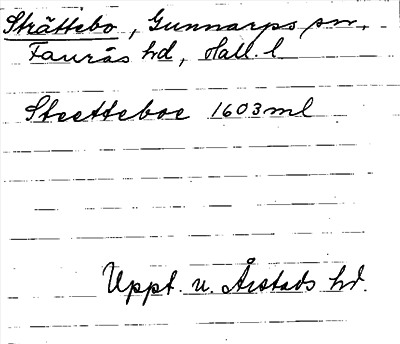 Strättebo, Gunnarps sn,
Faurås hd, Hall. l
Stretteboe 1603 ml
Uppt. u. Årstads hd.